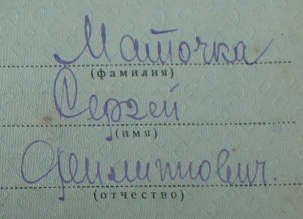 Маточка
(фамилия)
Сергей
(имя)
Филиппович.
(отчество)